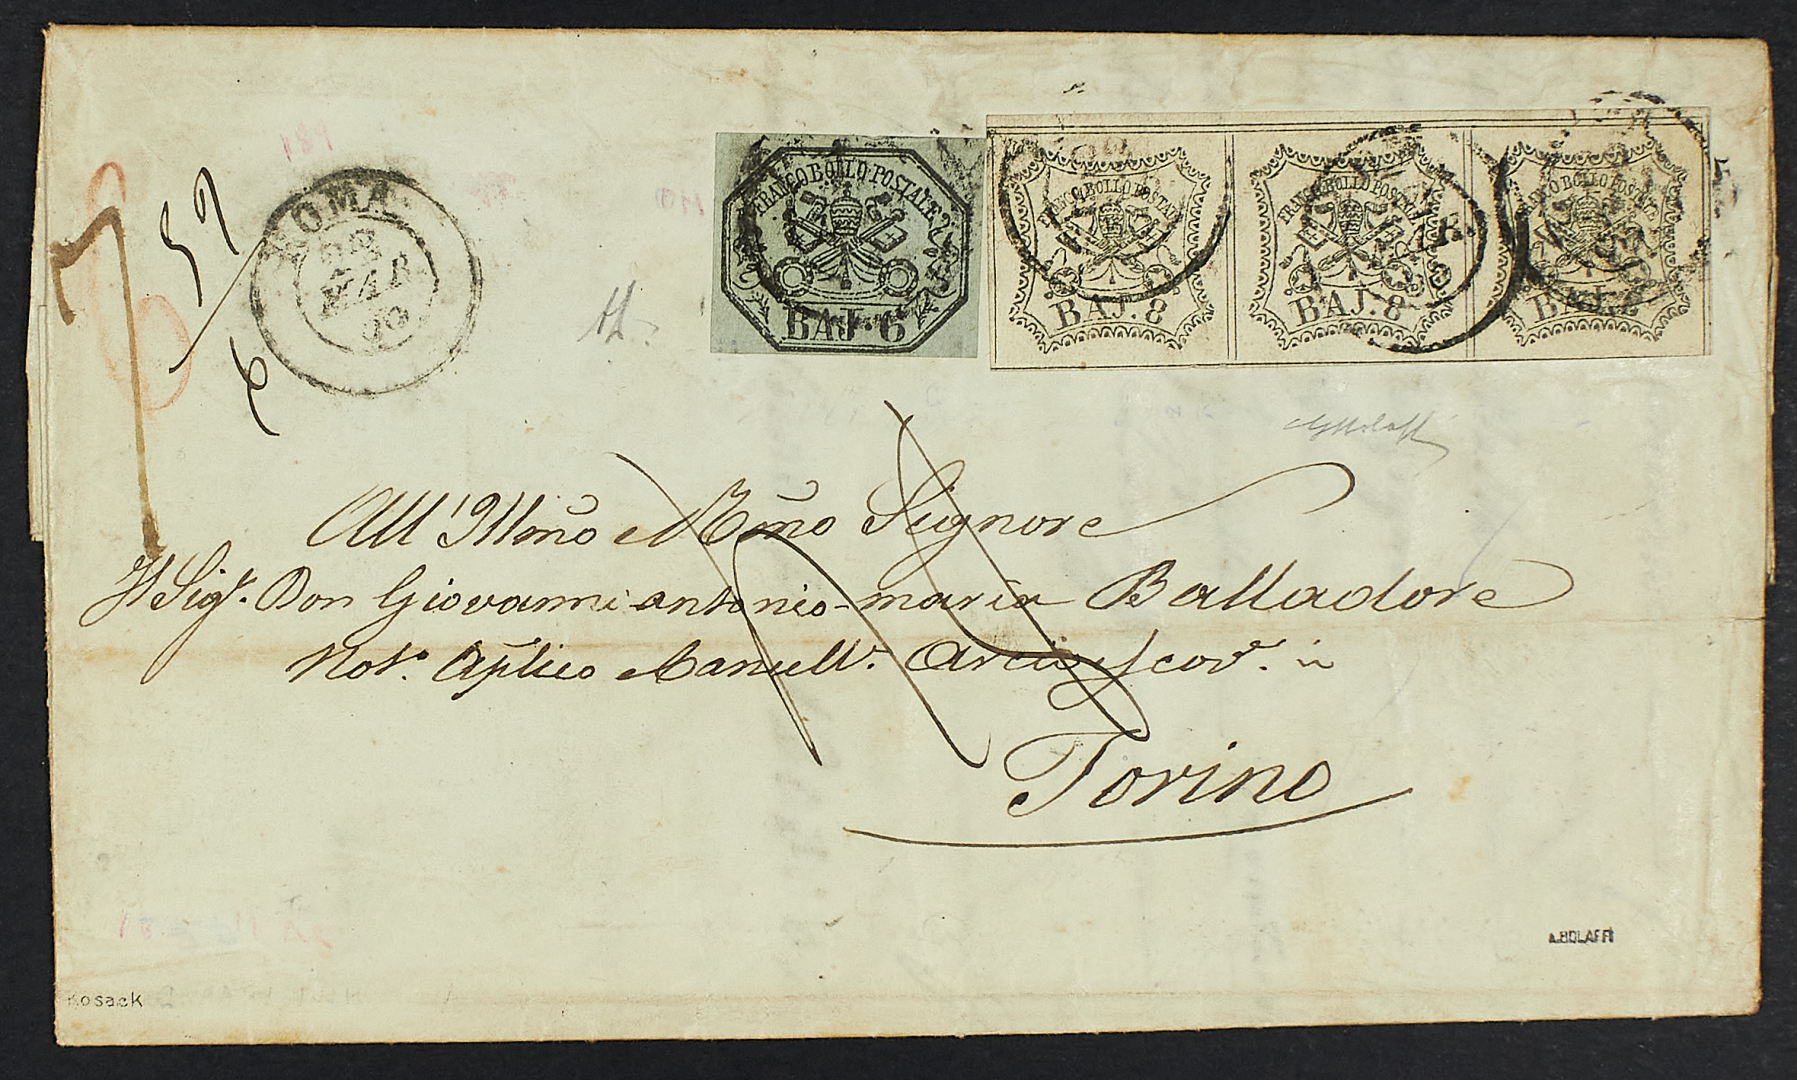 ROMA
MAR
7
FRANCO BOLLO POSTALE
BAJ. 6
FRANCO BOLLO POSTALE
BAJ. 8
FRANCO BOLLO POSTALE
BAJ. 8
FRANCO BOLLO POSTALE
BAJ. 8
All' Illm̃o e Rm̃o Signore
Il Sigr. Don Giovanni antonio maria Balladore
Noto. Aplico Arcivescov. in
Torino
A.BOLAFFI
Kosack